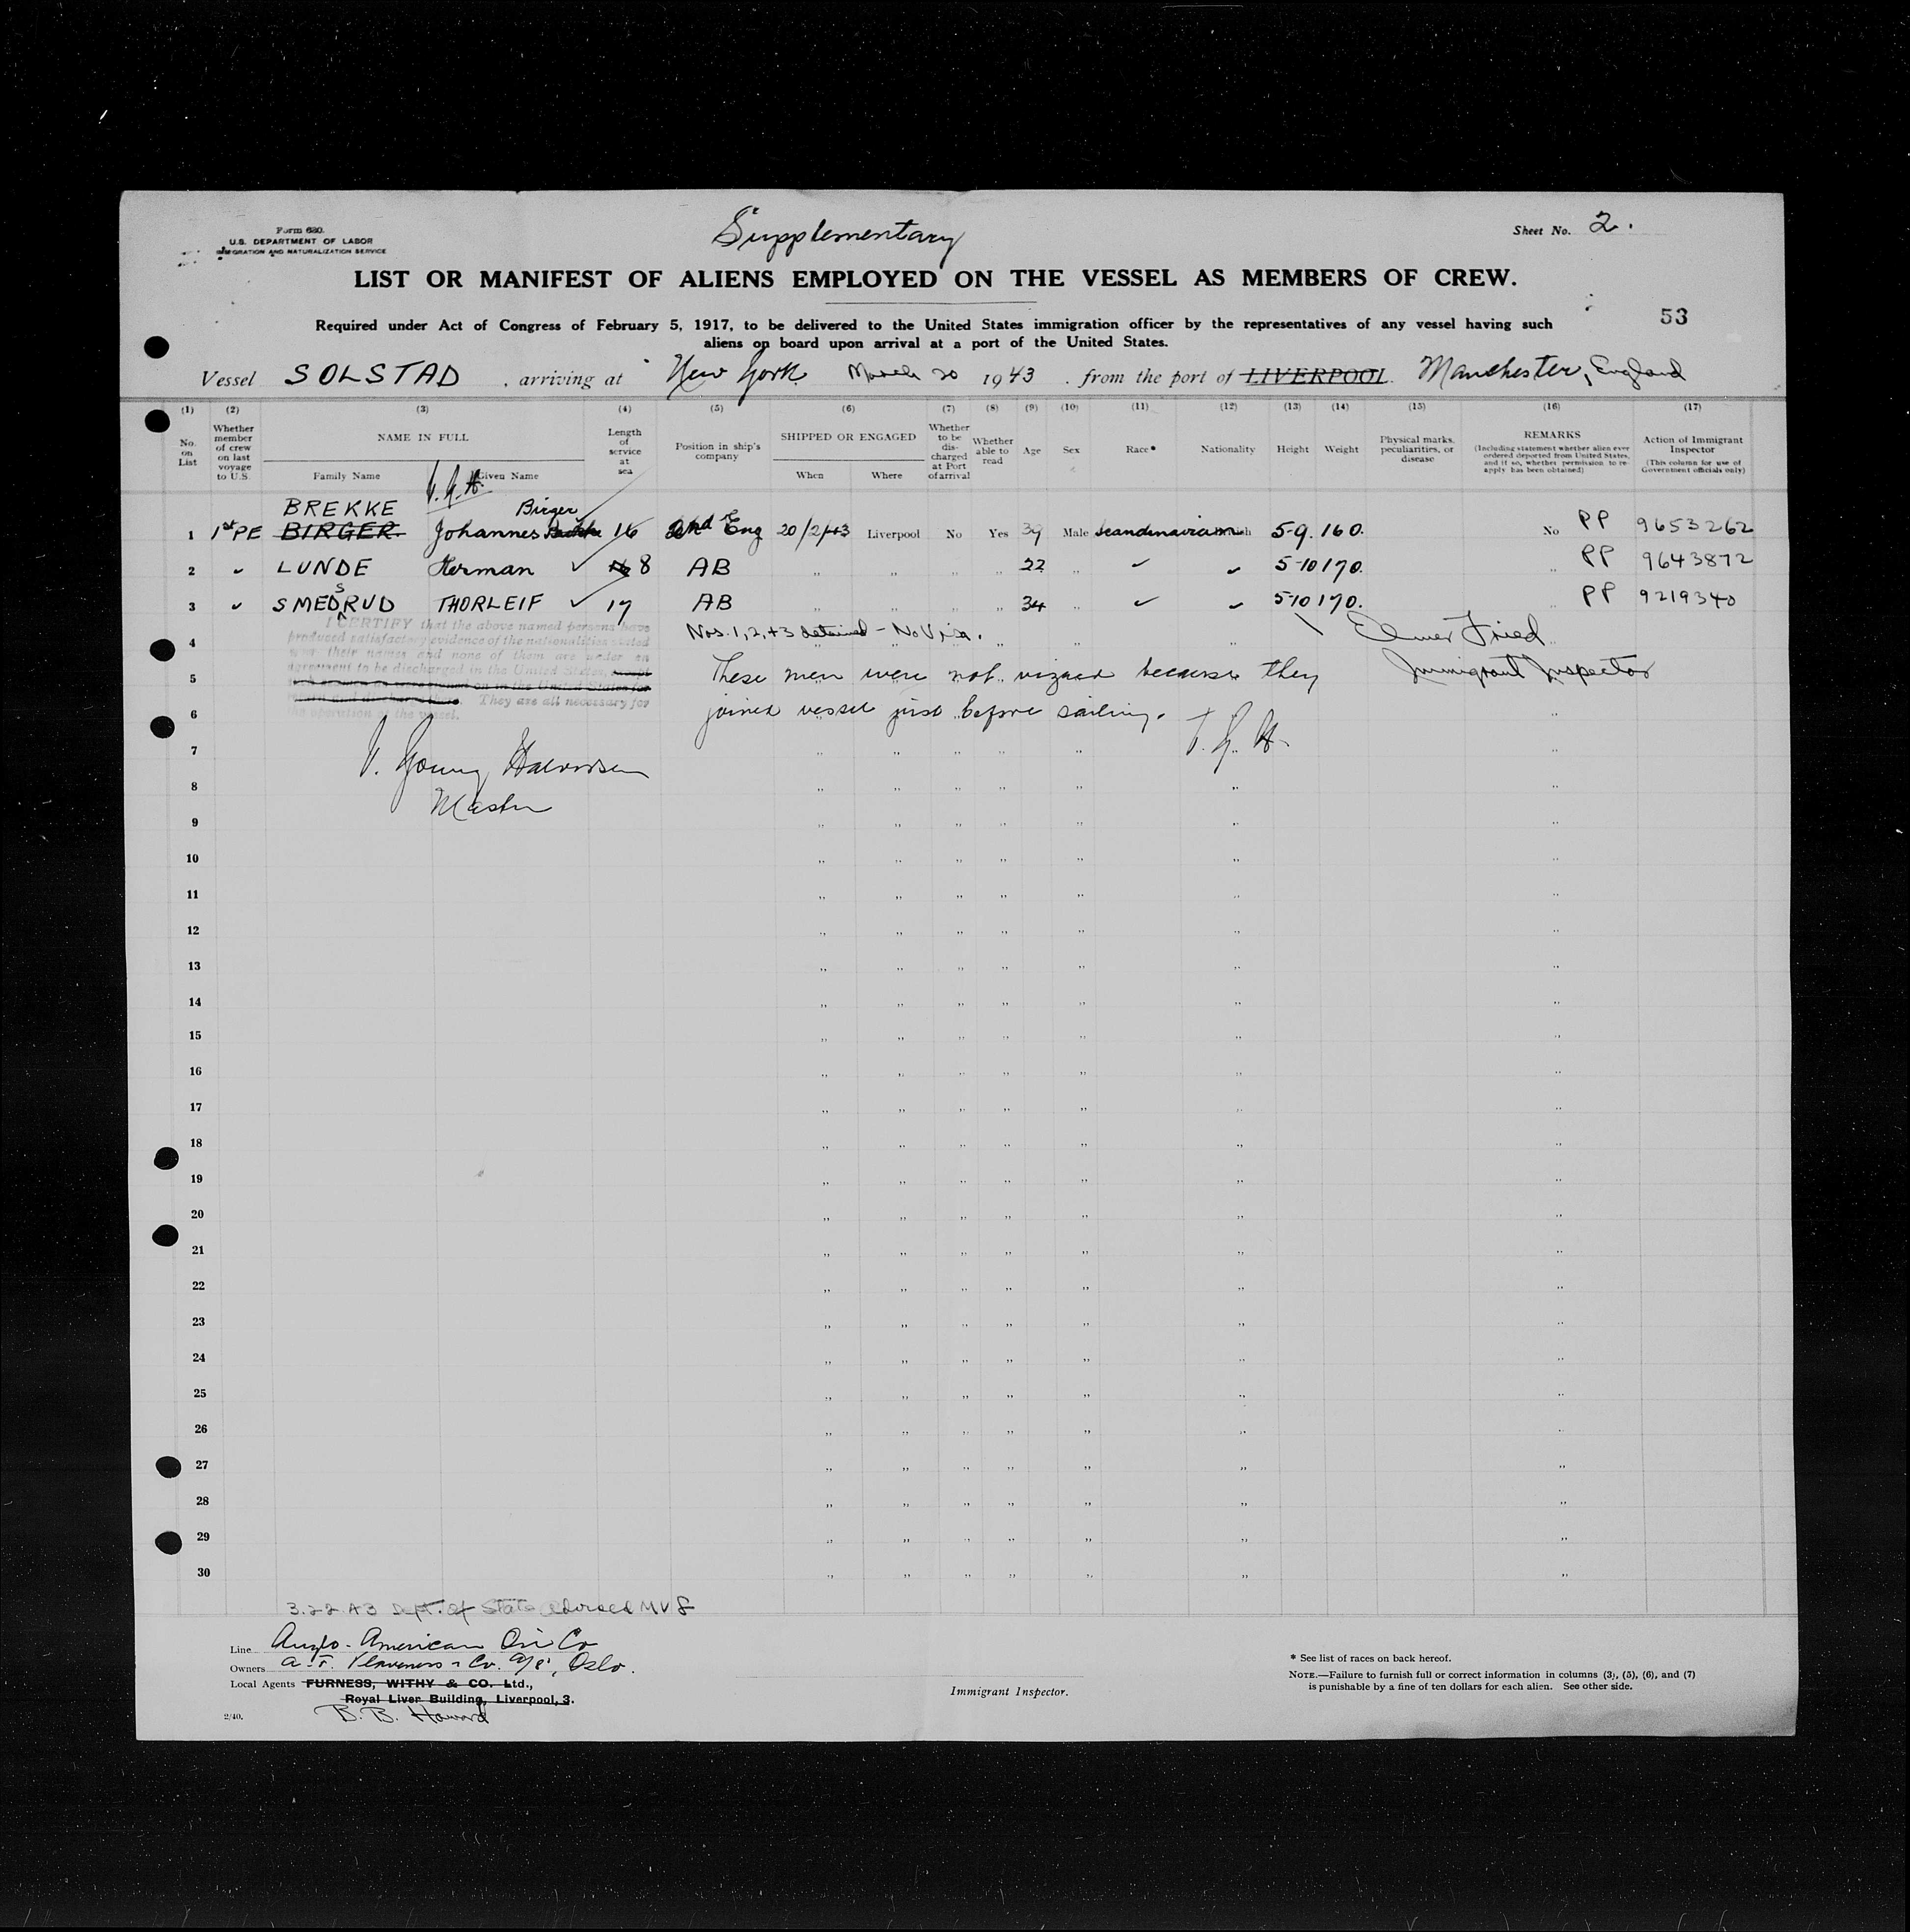 Form 680.
U.S. DEPARTMENT OF LABOR
IMMIGRATION AND NATURALIZATION SERVICE
Supplementary
Sheet No. 2.
LIST OR MANIFEST OF ALIENS EMPLOYED ON THE VESSEL AS MEMBERS OF CREW.
53
Required under Act of Congress of February 5, 1917, to be delivered to the United States immigration officer by the representatives of any vessel having such
aliens on board upon arrival at a port of the United States.
Vessel SOLSTAD, arriving at New York March 20 1943. from the port of LIVERPOOL. Manchester, England
(1) (2) (3) (4) (5) (6) (7) (8) (9) (10) (11) (12) (13) (14) (15) (16) (17)
No. on List
Whether member of crew on last voyage to U.S.
NAME IN FULL
Family Name
Given Name
Length of service at sea
Position in ship's company
SHIPPED OR ENGAGED
When
Where
Whether to be discharged at Port of arrival
Whether able to read
Age
Sex
Race*
Nationality
Height
Weight
Physical marks, peculiarities, or disease
REMARKS
(Including statement whether alien ever ordered deported from United States, and if so, whether permission to reapply has been obtained)
Action of Immigrant Inspector
(This column for use of Government officials only)
BREKKE Birger
1 1st PE BIRGER Johannes 16 2nd Eng 20/2/43 Liverpool No Yes 39 Male Scandinavian 5-9. 160. No PP 9653262
2 ✓ LUNDE Herman ✓ 8 AB ,, ,, ,, ,, 22 ,, ✓ ✓ 5-10 170. ,, PP 9643872
3 ✓ SMEDSRUD THORLEIF ✓ 17 AB ,, ,, ,, ,, 34 ,, ✓ ✓ 5-10 170. ,, PP 9219340
I CERTIFY that the above named persons have
produced satisfactory evidence of the nationalities stated
over their names and none of them are under an
agreement to be discharged in the United States, except
They are all necessary for
the operation of the vessel.
4 Nos. 1, 2, + 3 detained - No Visa. Elmer Fried
5 These men were not visaed because they Immigrant Inspector
6 joined vessel just before sailing.
7
Master
8
9
10
11
12
13
14
15
16
17
18
19
20
21
22
23
24
25
26
27
28
29
30
3.22.43 Dept. of State advised MVS
Line Anglo-American Oil Co
Owners A.F. Klaveness & Co. A/S, Oslo.
Local Agents FURNESS, WITHY & CO. Ltd.,
Royal Liver Building, Liverpool, 3.
2/40.
Immigrant Inspector.
* See list of races on back hereof.
NOTE.—Failure to furnish full or correct information in columns (3), (5), (6), and (7)
is punishable by a fine of ten dollars for each alien. See other side.